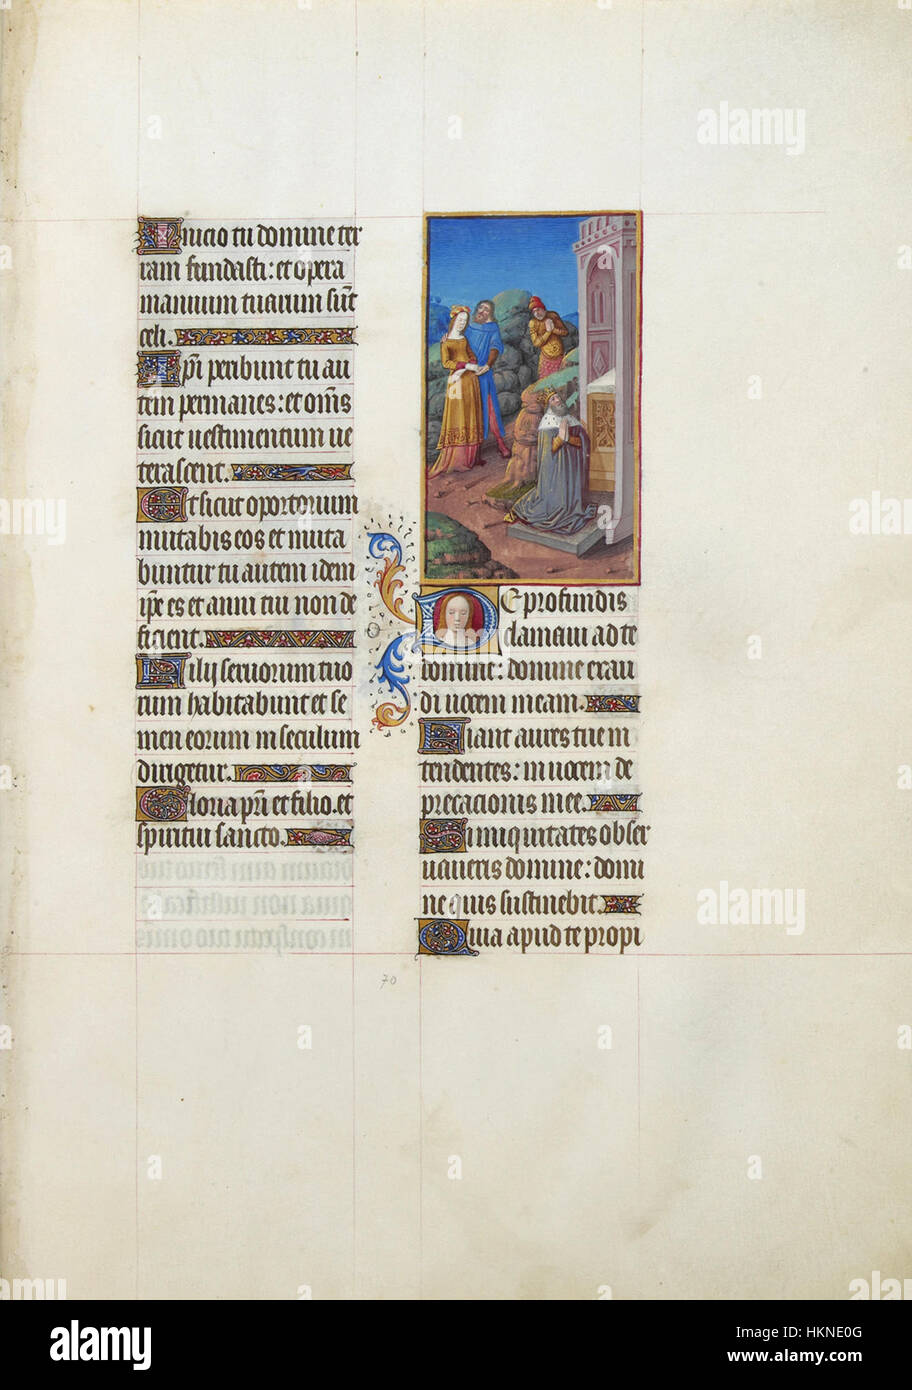 Inicio tu domine ter
ram fundasti: et opera
manuum tuarum sūt
celi.
Ipi peribunt tu au
tem permanes: et om̄s
sicut vestimentum ve
terascent.
Et sicut oportorium
mutabis eos et muta
buntur tu autem idem
ipe es et anni tui non de
ficient.
Filij servorum tuo
rum habitabunt et se
men eorum in seculum
dirigetur.
Gloria pri et filio. et
spiritui sancto.
De profundis
clamavi ad te
domine: domine exau
di vocem meam.
Fiant aures tue in
tendentes: in vocem de
precacionis mee.
Si iniquitates obser
vaveris domine: domi
ne quis sustinebit.
Quia apud te propi
70
alamy
alamy
alamy
alamy
alamy
Image ID: HKNE0G
www.alamy.com